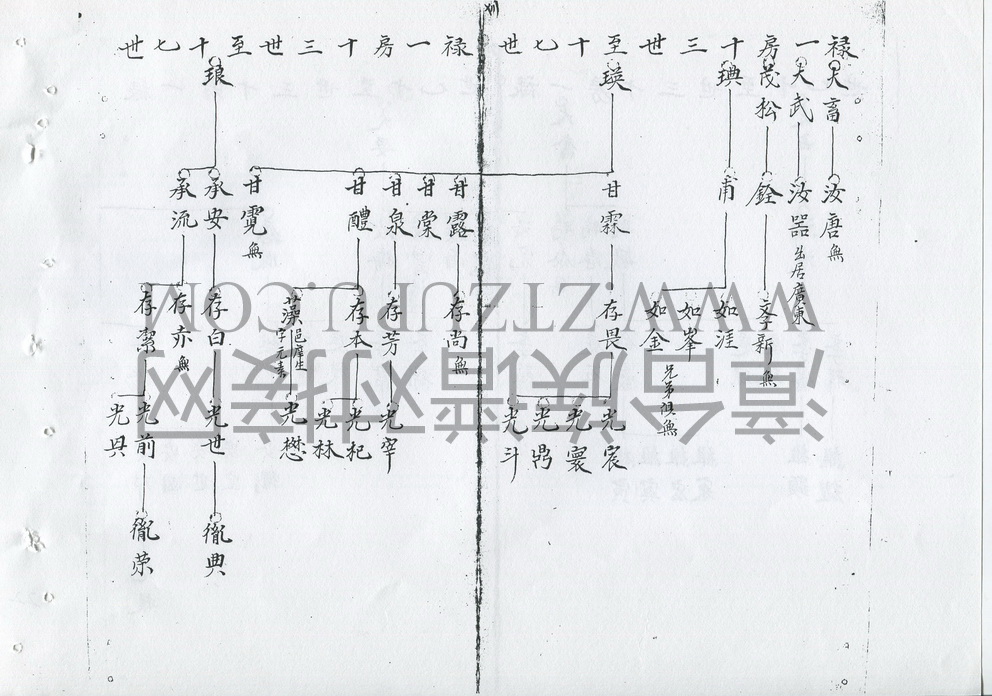 禄一房十三世至十七世
大畜
大武
茂松
琠
瑛
汝唐無
汝器出居廣東
銓
甫
甘霖
文新無
如涯
如峯
如金
兄弟俱無
存畏
光宸
光寰
光鼎
光斗
禄一房十三世至十七世
琅
甘露
甘棠
甘泉
甘醴
甘霓無
承安
承流
存尚無
存芳
存本
藻邑庠生
字元春
存白
存赤無
存潔
光宰
光杞
光林
光懋
光世
光前
光與
胤典
胤荣
WWW.ZTZUPU.COM
漳台族谱对接网